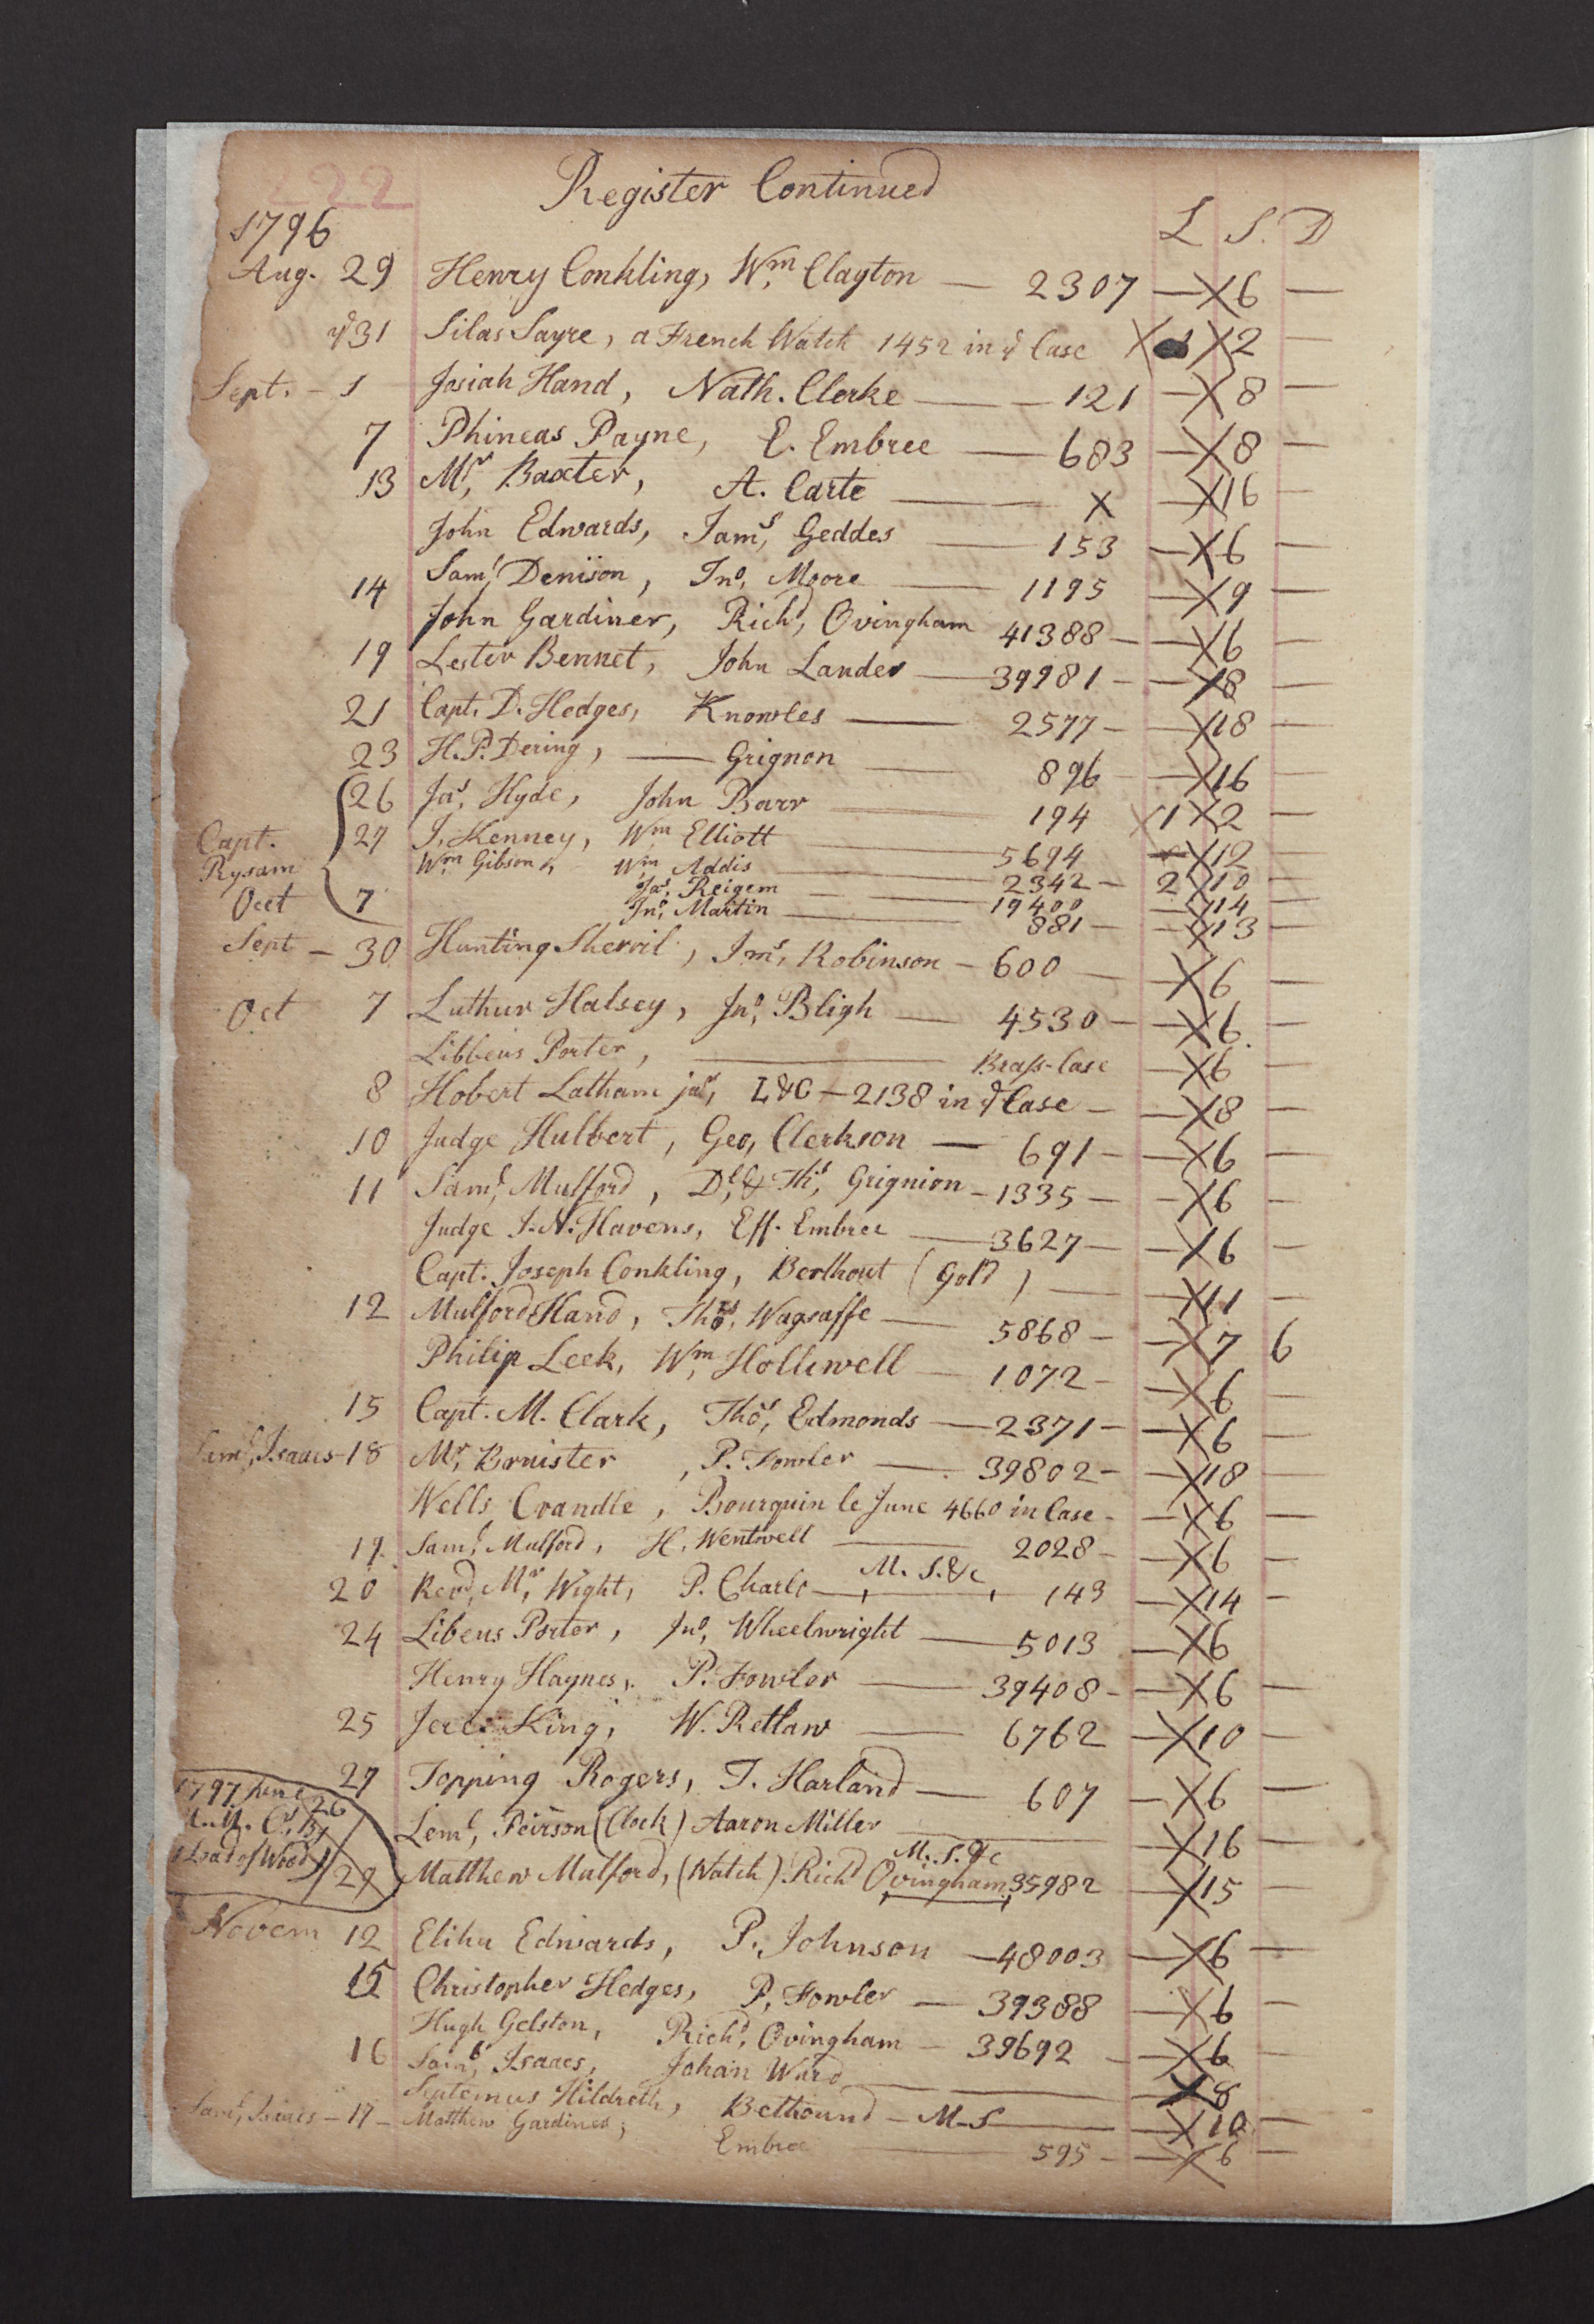 222
Register Continued
1796 L S. D
Aug. 29 Henry Conkling, Wm, Clayton — 2307 — X 6 —
ye 31 Silas Sayre, a French Watch 1452 in ye Case X X 2 —
Sept. - 1 Josiah Hand, Nath. Clerke — 121 — X 8 —
7 Phineas Payne, E. Embree — 683 — X 8 —
13 Mr, Baxter, A. Carte — X — X 16 —
John Edwards, Jams, Geddes — 153 — X 6 —
14 Saml, Denison, Jno, Moore — 1195 — X 9 —
John Gardiner, Richd, Ovingham 41388 — — X 6 —
19 Lester Bennet, John Lander — 39981 — — X 8 —
21 Capt. D. Hedges, Knowles — 2577 — — X 18 —
23 H. P. Dering, — Grignon — 896 — — X 16 —
26 Jas, Hyde, John Barr — 194 X 1 X 2 —
Capt. 27 J. Kenney, Wm Elliott — 5694 — X 12 —
Rysam Wm Gibson, Wm Addis — 2342 — 2 X 10 —
Oct 7 Jas, Reigem — 19400 — X 14 —
Jno, Martin — 881 — — X 13 —
Sept - 30 Hunting Sherril, Jms, Robinson — 600 — X 6 —
Oct 7 Luthur Halsey, Jno, Bligh — 4530 — — X 6 —
Libbeus Porter, — Brass-Case — X 6 —
8 Hobert Latham junr, L&C — 2138 in ye Case — — X 8 —
10 Judge Hulbert, Geo, Clerkson — 691 — — X 6 —
11 Saml, Mulford, Dl, & Ths, Grignion — 1335 — — X 6 —
Judge J. N. Havens, Eff. Embree — 3627 — — X 6 —
Capt. Joseph Conkling, Berthout (Gold) — — X 11 —
12 Mulford Hand, Thos, Wagsaffe — 5868 — — X 7 6
Philip Leek, Wm, Holliwell — 1072 — — X 6 —
15 Capt. M. Clark, Thos, Edmonds — 2371 — — X 6 —
Isaacs - 18 Mr, Banister, P. Fowler — 39802 — — X 18 —
Wells Crandle, Bourquin le June 4660 in Case — — X 6 —
19 Saml, Mulford, H. Wentwell — 2028 — — X 6 —
20 Revd, Mr, Wight, P. Charle — M. S. &c — 143 — X 14 —
24 Libeus Porter, Jno, Wheelwright — 5013 — X 6 —
Henry Haynes, P. Fowler — 39408 — — X 6 —
25 Jere: King, W. Retlaw — 6762 — X 10 —
27 Topping Rogers, T. Harland — 607 — X 6 —
1797 June 26
Cr, By
Load of Wood
Leml, Peirson (Clock) Aaron Miller — — X 16 —
M. S. &c
29 Matthew Mulford, (Watch) Richd Ovingham, 35982 — X 15 —
Novem 12 Elihu Edwards, P. Johnson — 48003 — X 6 —
15 Christopher Hedges, P, Fowler — 39388 — X 6 —
Hugh Gelston, Richd, Ovingham — 39692 — — X 6 —
16 Saml, Isaacs, Johan Ward — — X 8
Septemus Hildreth, Bethound — M-S — — X 10 —
Saml, Isaacs - 17 - Matthew Gardiner, Embree — 595 — — X 6 —